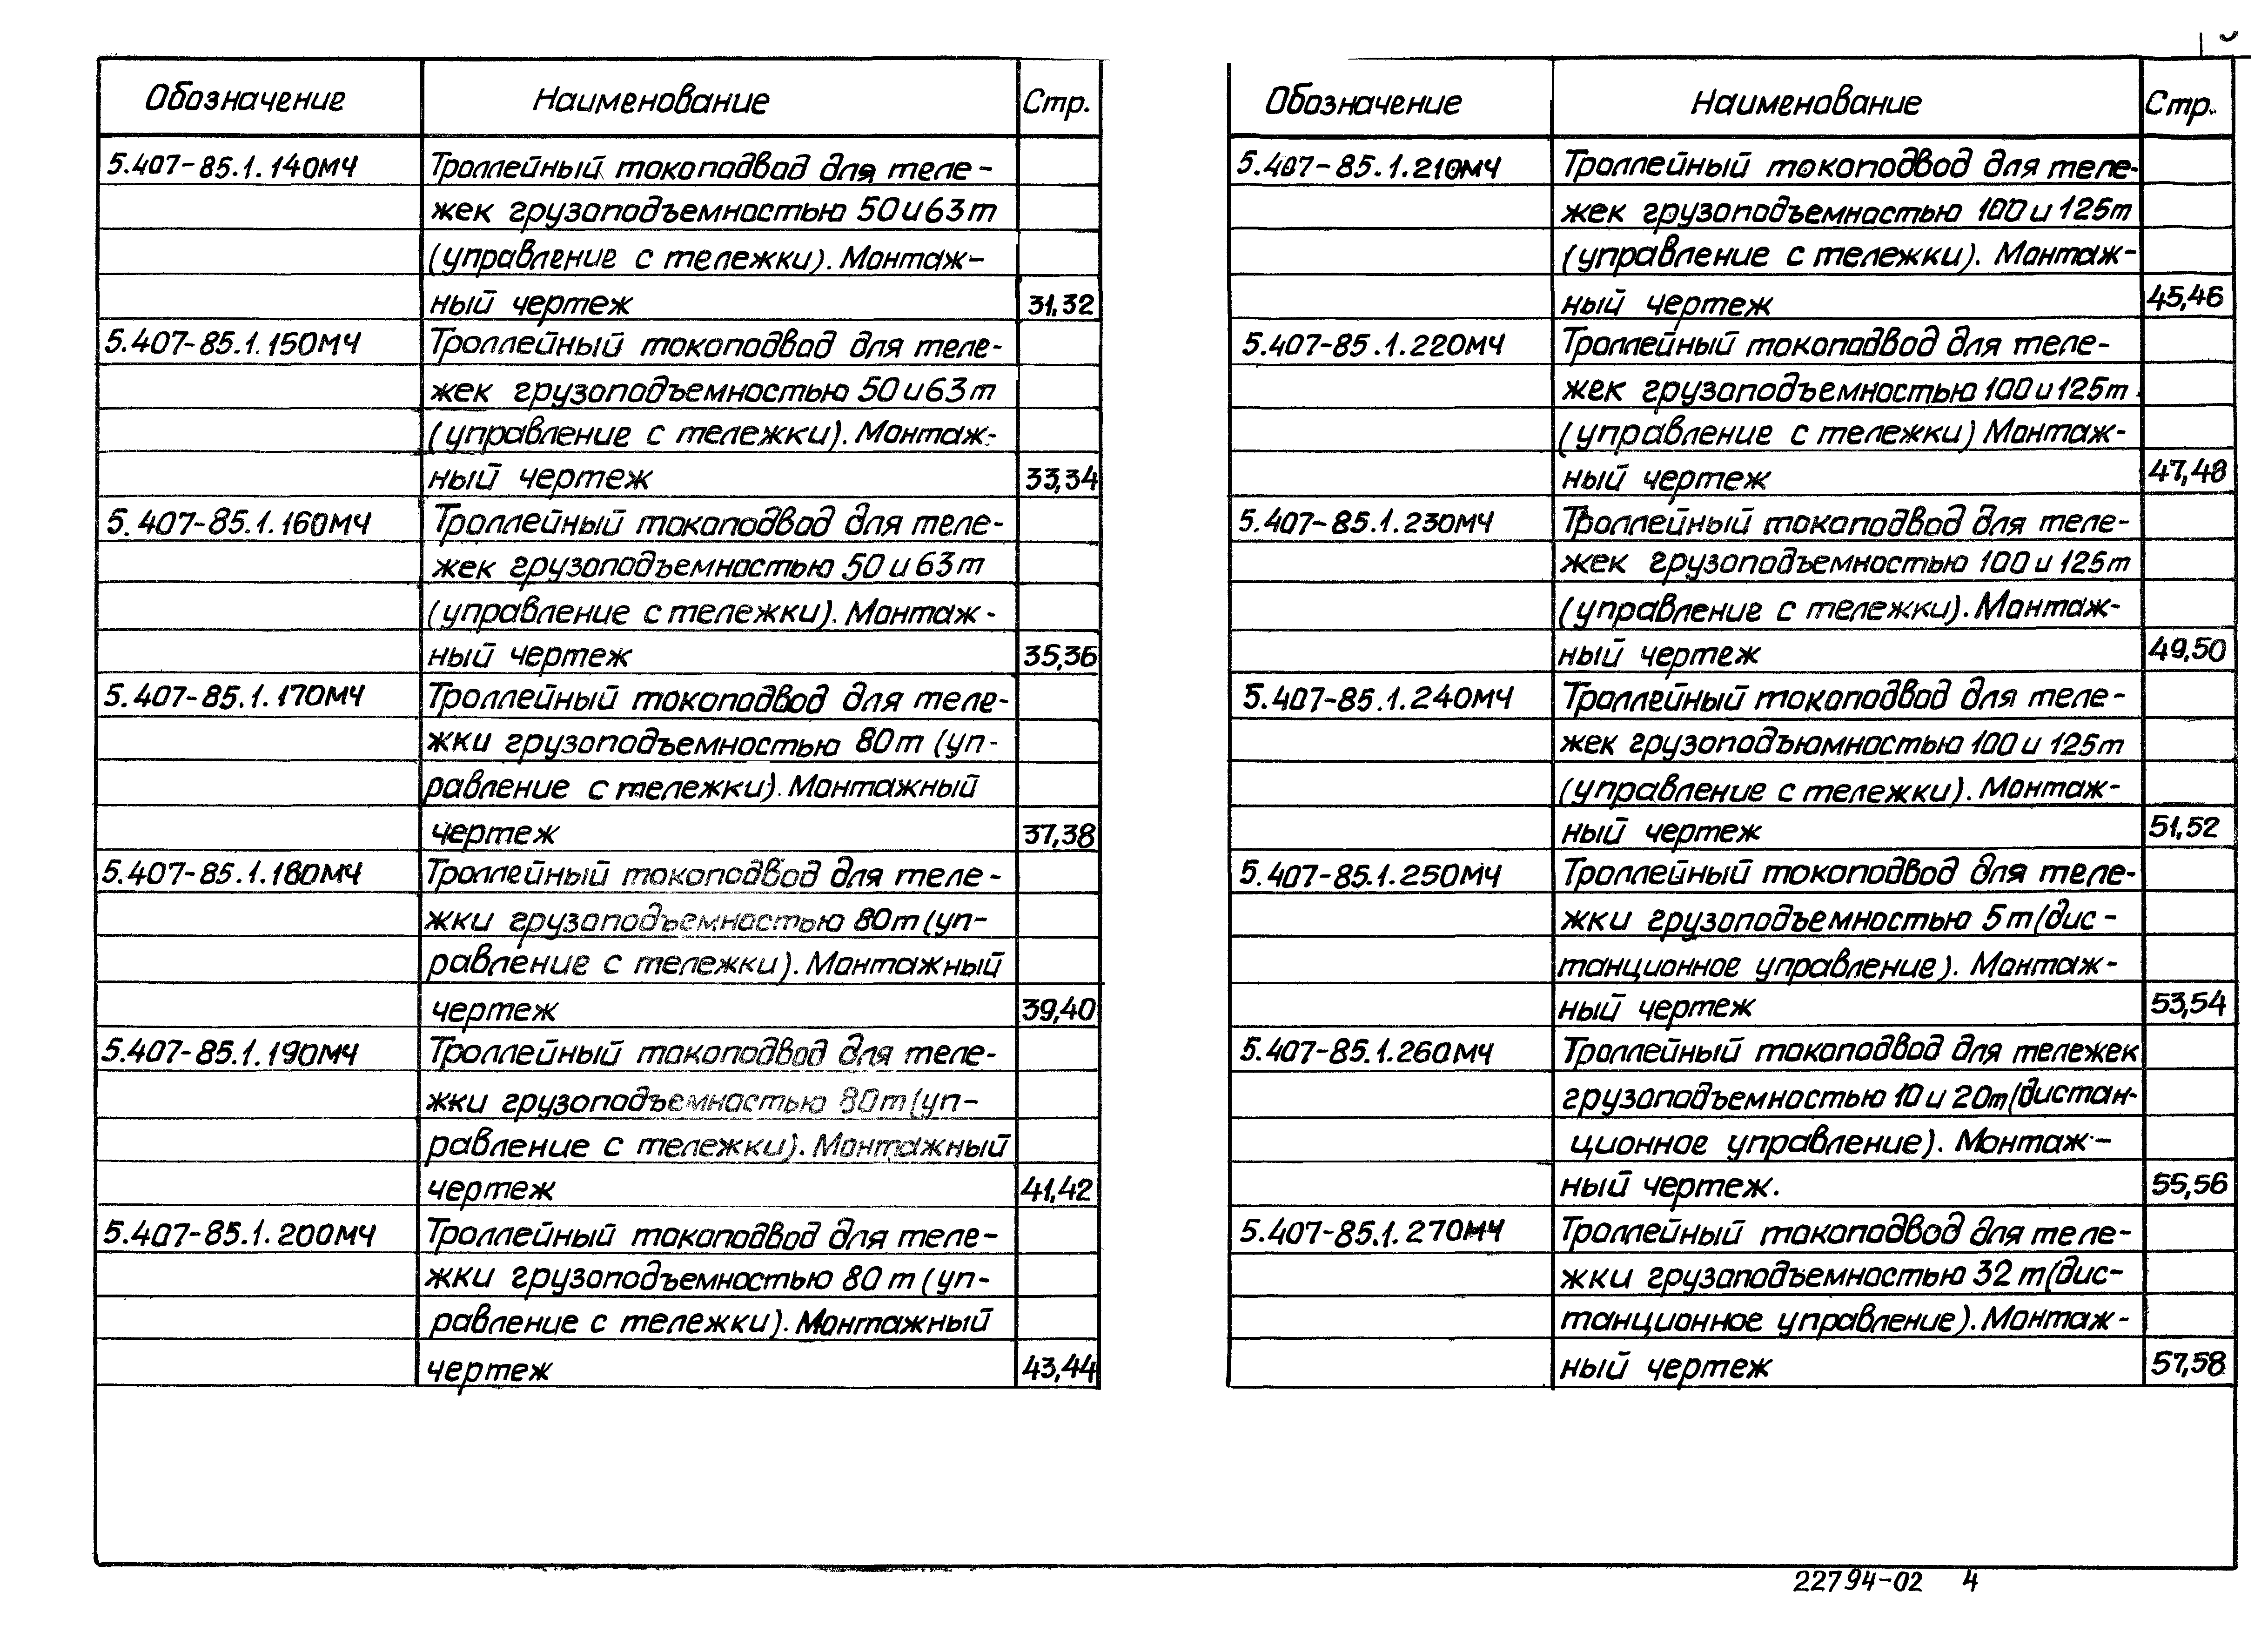 Обозначение Наименование Стр.
5.407-85.1.140МЧ Троллейный токоподвод для теле-
жек грузоподъемностью 50 и 63 т
(управление с тележки). Монтаж-
ный чертеж 31,32
5.407-85.1.150МЧ Троллейный токоподвод для теле-
жек грузоподъемностью 50 и 63 т
(управление с тележки). Монтаж-
ный чертеж 33,34
5.407-85.1.160МЧ Троллейный токоподвод для теле-
жек грузоподъемностью 50 и 63 т
(управление с тележки). Монтаж-
ный чертеж 35,36
5.407-85.1.170МЧ Троллейный токоподвод для теле-
жки грузоподъемностью 80 т (уп-
равление с тележки). Монтажный
чертеж 37,38
5.407-85.1.180МЧ Троллейный токоподвод для теле-
жки грузоподъемностью 80 т (уп-
равление с тележки). Монтажный
чертеж 39,40
5.407-85.1.190МЧ Троллейный токоподвод для теле-
жки грузоподъемностью 80 т (уп-
равление с тележки). Монтажный
чертеж 41,42
5.407-85.1.200МЧ Троллейный токоподвод для теле-
жки грузоподъемностью 80 т (уп-
равление с тележки). Монтажный
чертеж 43,44
Обозначение Наименование Стр.
5.407-85.1.210МЧ Троллейный токоподвод для теле-
жек грузоподъемностью 100 и 125 т
(управление с тележки). Монтаж-
ный чертеж 45,46
5.407-85.1.220МЧ Троллейный токоподвод для теле-
жек грузоподъемностью 100 и 125 т
(управление с тележки) Монтаж-
ный чертеж 47,48
5.407-85.1.230МЧ Троллейный токоподвод для теле-
жек грузоподъемностью 100 и 125 т
(управление с тележки). Монтаж-
ный чертеж 49,50
5.407-85.1.240МЧ Троллейный токоподвод для теле-
жек грузоподъюмностью 100 и 125 т
(управление с тележки). Монтаж-
ный чертеж 51,52
5.407-85.1.250МЧ Троллейный токоподвод для теле-
жки грузоподъемностью 5 т (дис-
танционное управление). Монтаж-
ный чертеж 53,54
5.407-85.1.260МЧ Троллейный токоподвод для тележек
грузоподъемностью 10 и 20 т (дистан-
ционное управление). Монтаж-
ный чертеж. 55,56
5.407-85.1.270МЧ Троллейный токоподвод для теле-
жки грузоподъемностью 32 т (дис-
танционное управление). Монтаж-
ный чертеж 57,58
22794-02 4